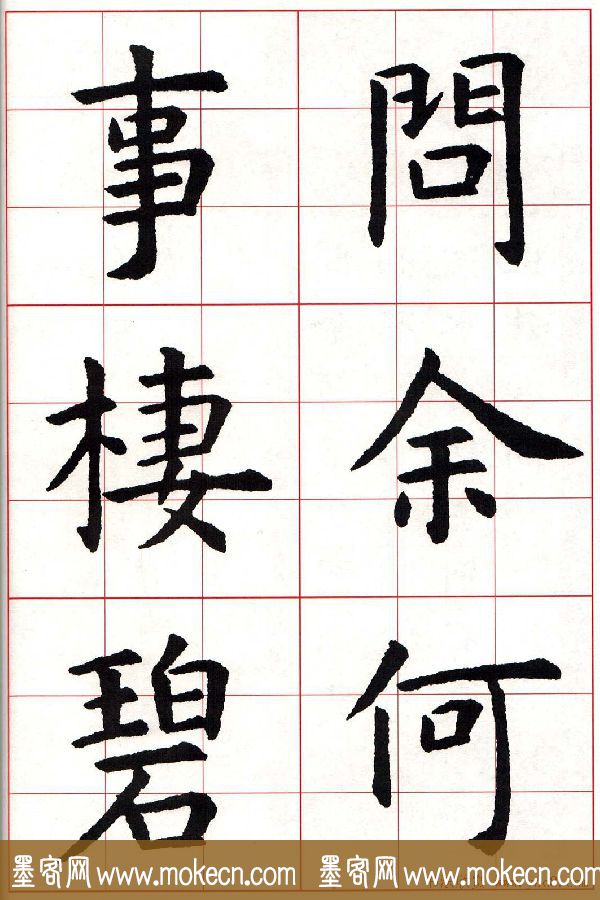 問余何
事棲碧
墨客网 www.mokecn.com 墨客网 www.mokecn.com